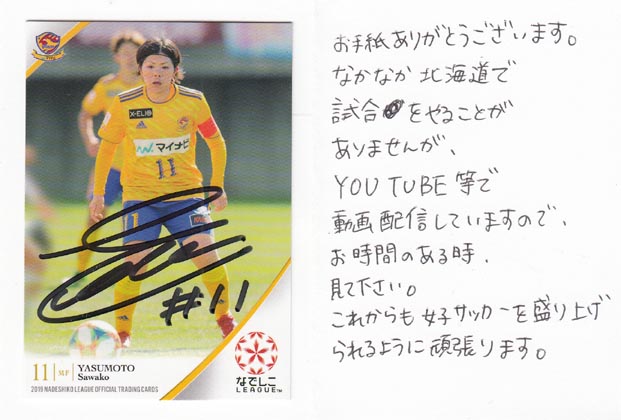 X-ELIO
マイナビ
11
#11
11 MF YASUMOTO
Sawako
2019 NADESHIKO LEAGUE OFFICIAL TRADING CARDS
なでしこ
LEAGUE™
お手紙ありがとうございます。
なかなか北海道で
試合をやることが
ありませんが、
YOUTUBE等で
動画配信していますので、
お時間のある時、
見て下さい。
これからも女子サッカーを盛り上げ
られるように頑張ります。